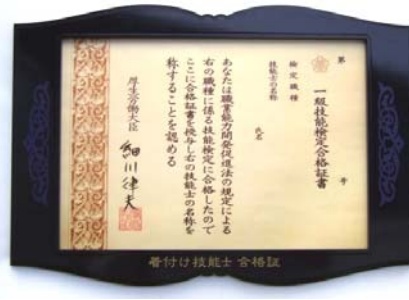 第　号
一級技能検定合格証書
検定職種
技能士の名称
氏名
あなたは職業能力開発促進法の規定による
右の職種に係る技能検定に合格したので
ここに合格証書を授与し右の技能士の名称を
称することを認める
厚生労働大臣
細川律夫
着付け技能士 合格証